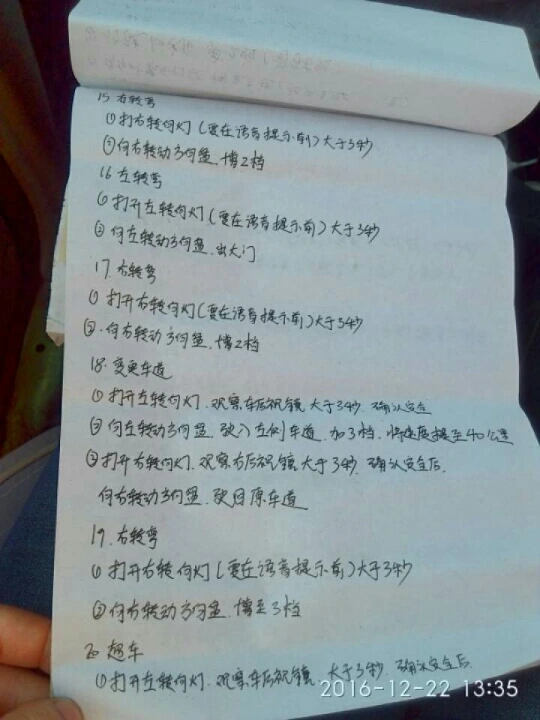 15 右转弯
①打右转向灯(要在语音提示前)大于3秒
②向右转动方向盘.博2档
16 左转弯
①打开左转向灯(要在语音提示前)大于3秒
②向左转动方向盘.出大门
17.右转弯
①打开右转向灯(要在语音提示前)大于3秒
②.向右转动方向盘.博2档
18.变更车道
①打开左转向灯.观察车后视镜大于3秒.确认安全
②向左转动方向盘.驶入左侧车道.加3档.将速度提至40公里
③打开右转向灯.观察右后视镜大于3秒.确认安全后.
向右转动方向盘.驶回原车道
19.右转弯
①打开右转向灯(要在语音提示前)大于3秒
②向右转动方向盘.博至3档
20 超车
①打开左转向灯.观察车后视镜.大于3秒 确认安全后
2016-12-22 13:35